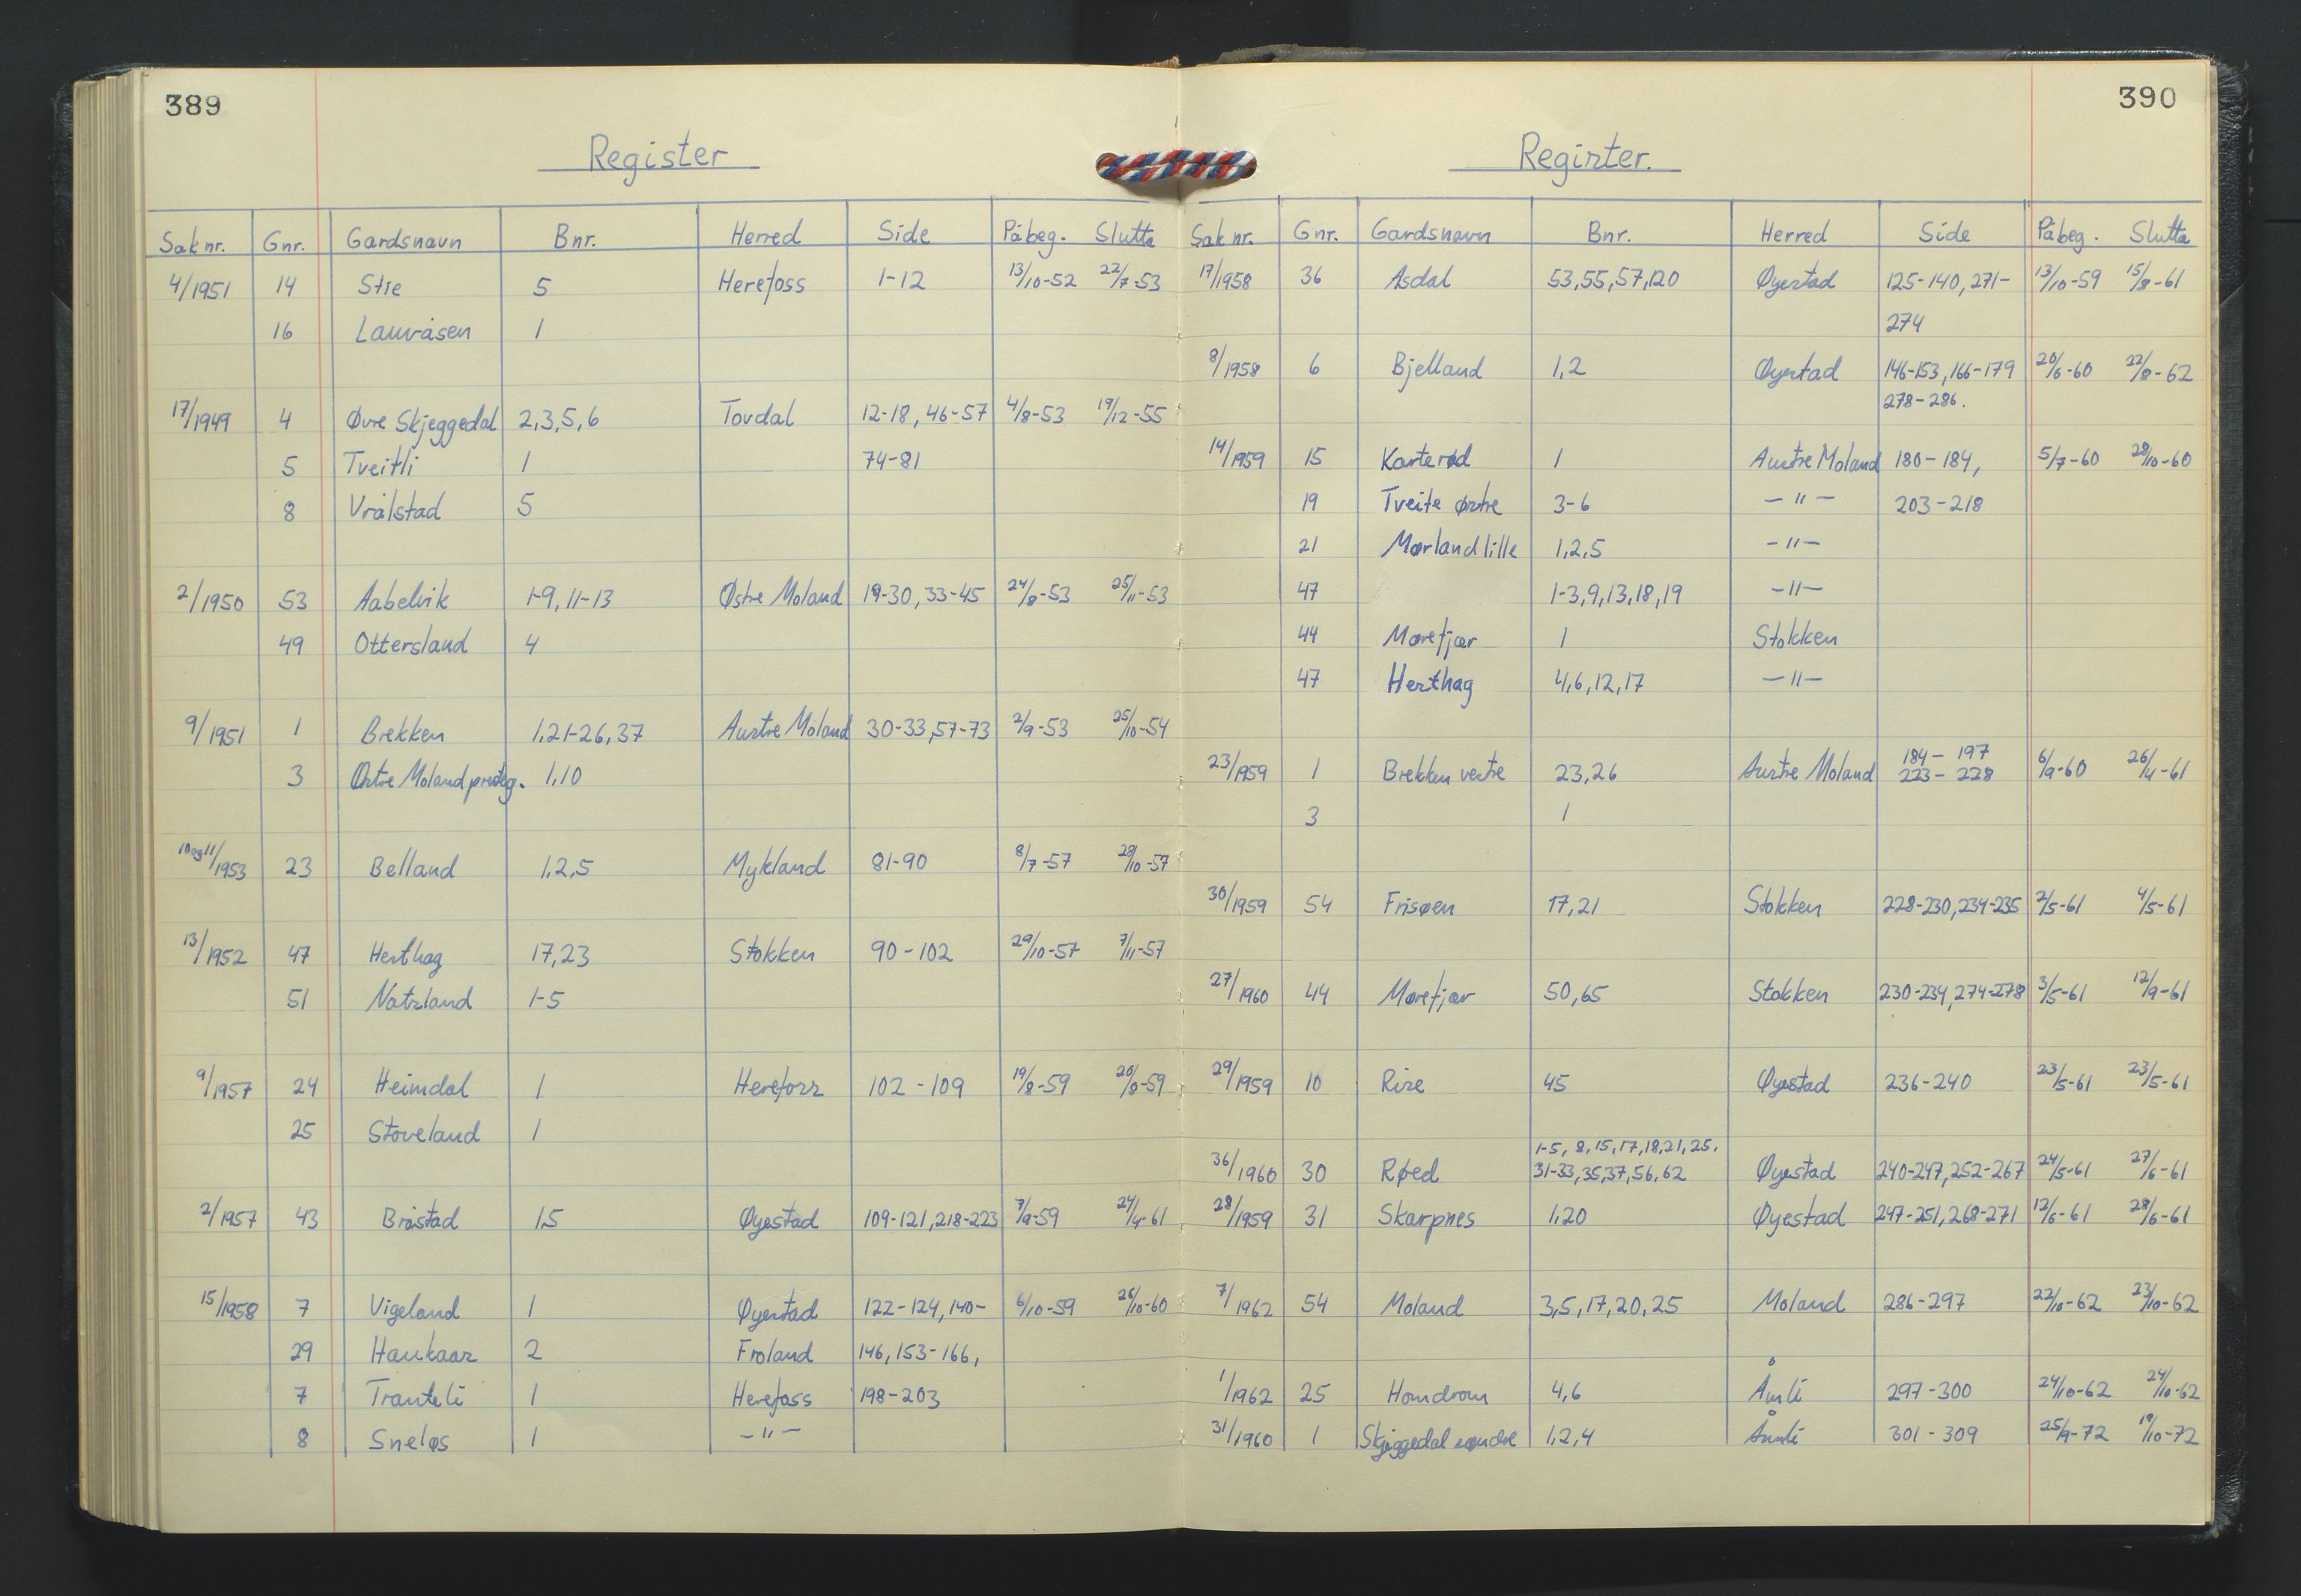 389
Register
Sak nr. Gnr. Gardsnavn Bnr. Herred Side Påbeg. Slutta
4/1951 14 Stie 5 Herefoss 1-12 13/10-52 22/7-53
16 Lauvåsen 1
17/1949 4 Øvre Skjeggedal 2,3,5,6 Tovdal 12-18, 46-57 4/8-53 19/12-55
5 Tveitli 1 74-81
8 Vrålstad 5
2/1950 53 Aabelvik 1-9, 11-13 Østre Moland 19-30, 33-45 24/8-53 25/11-53
49 Ottersland 4
9/1951 1 Brekken 1,21-26,37 Austre Moland 30-33,57-73 2/9-53 25/10-54
3 Østre Moland presteg. 1,10
10 og 11/1953 23 Belland 1,2,5 Mykland 81-90 8/7-57 28/10-57
13/1952 47 Hesthag 17,23 Stokken 90-102 29/10-57 7/11-57
51 Natsland 1-5
9/1957 24 Heimdal 1 Herefoss 102-109 19/8-59 20/8-59
25 Stoveland 1
2/1957 43 Bråstad 1,5 Øyestad 109-121, 218-223 7/9-59 24/4-61
15/1958 7 Vigeland 1 Øyestad 122-124, 140- 6/10-59 26/10-60
29 Haukaas 2 Froland 146, 153-166,
7 Tranteli 1 Herefoss 198-203
8 Sneløs 1 -"-
390
Register.
Sak nr. Gnr. Gardsnavn Bnr. Herred Side Påbeg. Slutta
17/1958 36 Asdal 53,55,57,120 Øyestad 125-140, 271- 13/10-59 15/8-61
274
8/1958 6 Bjelland 1,2 Øyestad 146-153, 166-179 20/6-60 22/8-62
278-286.
14/1959 15 Kasterød 1 Austre Moland 180-184, 5/7-60 28/10-60
19 Tveite østre 3-6 -"- 203-218
21 Mørland lille 1,2,5 -"-
47 1-3,9,13,18,19 -"-
44 Mørefjær 1 Stokken
47 Hesthag 4,6,12,17 -"-
23/1959 1 Brekken vestre 23,26 Austre Moland 184-197 223-228 6/9-60 26/4-61
3 1
30/1959 54 Frisøen 17,21 Stokken 228-230, 234-235 2/5-61 4/5-61
27/1960 44 Mørefjær 50,65 Stokken 230-234, 274-278 3/5-61 12/9-61
29/1959 10 Rise 45 Øyestad 236-240 23/5-61 23/5-61
1-5, 8, 15, 17, 18, 21, 25.
36/1960 30 Røed 31-33, 35, 37, 56, 62 Øyestad 240-247, 252-267 24/5-61 27/6-61
28/1959 31 Skarpnes 1,20 Øyestad 247-251, 268-271 12/6-61 28/6-61
7/1962 54 Moland 3,5,17,20,25 Moland 286-297 22/10-62 23/10-62
1/1962 25 Homdrom 4,6 Åmli 297-300 24/10-62 24/10-62
31/1960 1 Skjeggedal søndre 1,2,4 Åmli 301-309 25/9-72 19/10-72